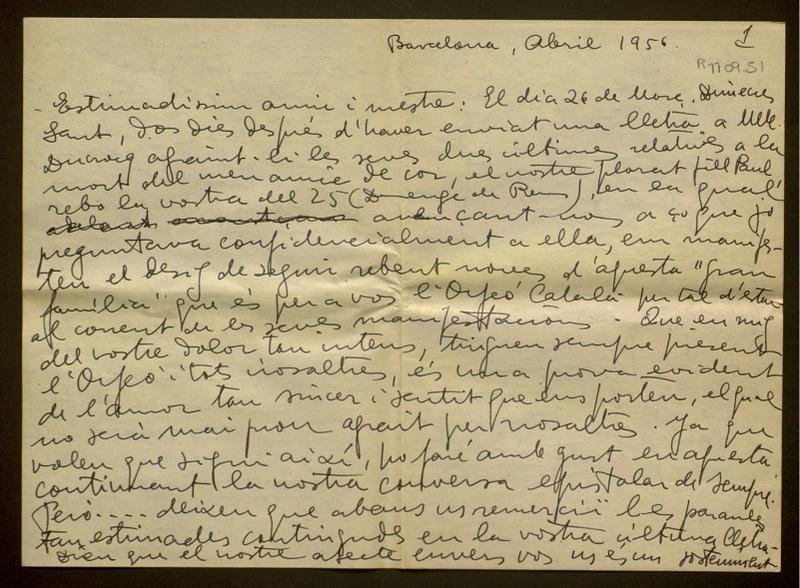 Barcelona, Abril 1956.
1
R 1109.51
- Estimadissim amic i mestre: El dia 26 de Març. Dimecres
Sant, dos dies després d'haver enviat una lletra a Mlle.
agraint-li les seves dues últimes relatives a la
mort del meu amic de cor, el vostre plorat fill Paul
rebo la vostra del 25 (Diumenge de Rams), en la qual
avençant-nos a ço que jo
preguntava confidencialment a ella, em manifes-
teu el desig de seguir rebent noves d'aquesta "gran
família" que és per a vos l'Orfeó Català per tal d'estar
al corrent de les seves manifestacions. Que en mig
del vostre dolor tan intens, tinguen sempre present
l'Orfeó i tots nosaltres, és una prova evident
de l'amor tan sincer i sentit que ens porten, el qual
no serà mai prou agrait per nosaltres. Ja que
volen que sigui així, ho faré amb gust en aquesta
continuant la nostra conversa epistolar de sempre.
Però.... deixen que abans us remerciï les paraules
tan estimades contingudes en la vostra última lletra.
Dieu que el nostre afecte envers vos us és un sosteniment